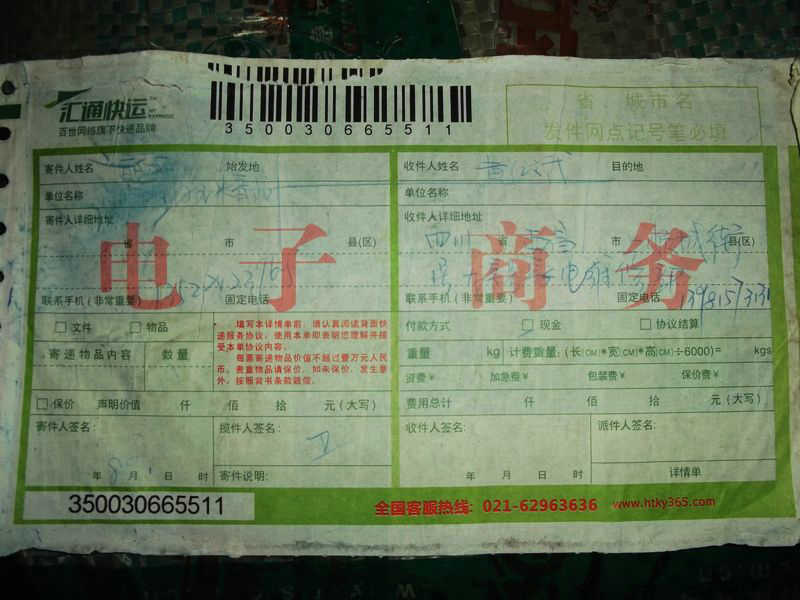 汇通快运
EXPRESS
百世网络旗下快递品牌
350030665511
省 城市名
发件网点记号笔必填
寄件人姓名 始发地
收件人姓名 目的地
单位名称
单位名称
寄件人详细地址
收件人详细地址
省 市 县(区)
四川 省 市 县(区)
电子商务
联系手机(非常重要) 固定电话
联系手机(非常重要) 固定电话
文件 物品
寄递物品内容 数量
填写本详情单前,请认真阅读背面快
递服务协议;使用本单即表明您理解并接
受本单协议内容。
每票寄递物品价值不超过壹万元人民
币。贵重物品请保价,如未保价,发生意
外,按照背书条款赔偿。
付款方式 现金 协议结算
重量 kg 计费重量:(长(CM)*宽(CM)*高(CM)÷6000)= kgs
资费¥ 加急费¥ 包装费¥ 保价费¥
保价 声明价值 仟 佰 拾 元(大写)
费用总计 仟 佰 拾 元(大写)
寄件人签名: 揽件人签名:
收件人签名: 派件人签名:
年 月 日 时 寄件说明:
年 月 日 时 详情单
350030665511
全国客服热线: 021-62963636 www.htky365.com